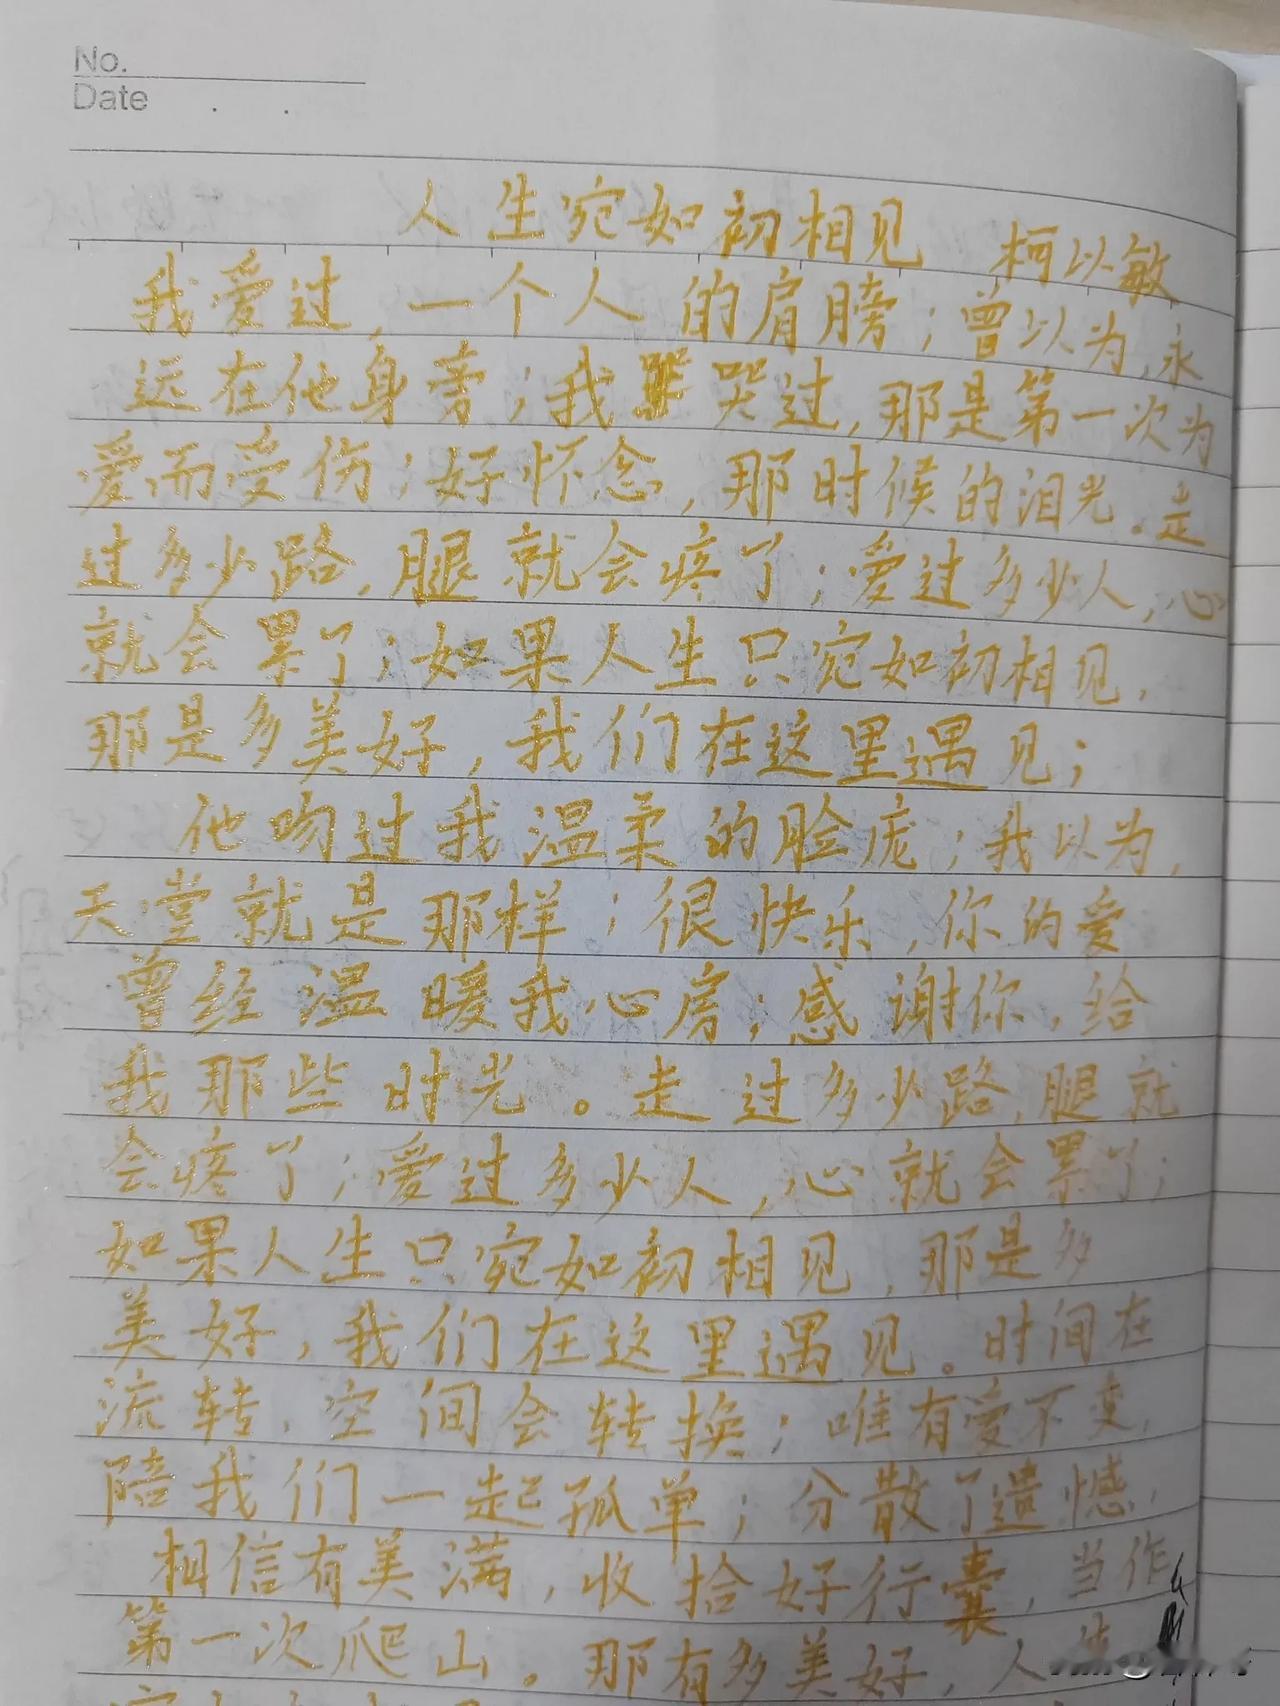 No.
Date
人生宛如初相见 柯以敏
我爱过,一个人的肩膀;曾以为,永
远在他身旁;我哭过,那是第一次为
爱而受伤;好怀念,那时候的泪光。走
过多少路,腿就会疼了;爱过多少人,心
就会累了;如果人生只宛如初相见,
那是多美好,我们在这里遇见;
他吻过我温柔的脸庞;我以为,
天堂就是那样;很快乐,你的爱
曾经温暖我心房;感谢你,给
我那些时光。走过多少路,腿就
会疼了;爱过多少人,心就会累了;
如果人生只宛如初相见,那是多
美好,我们在这里遇见。时间在
流转,空间会转换;唯有爱不变,
陪我们一起孤单;分散了遗憾,
相信有美满,收拾好行囊,当作
第一次爬山。那有多美好,人生